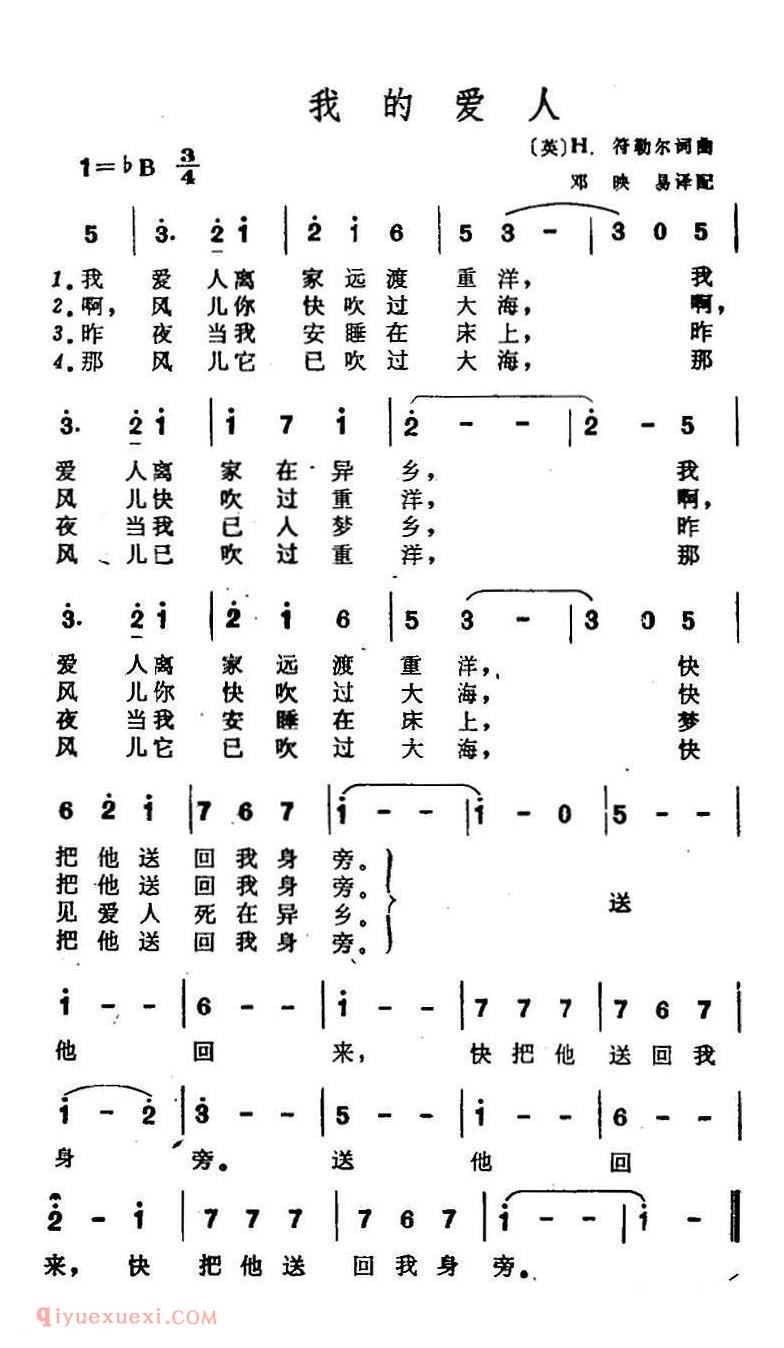 我的爱人
1=♭B 3/4
〔英〕H. 符勒尔词曲
邓映易译配
5 | 3̇. 2̇ 1̇ | 2̇ 1̇ 6 | 5 3̇ - | 3̇ 0 5 |
1.我 爱 人离 家远渡 重洋, 我
2.啊, 风 儿你 快吹过 大海, 啊,
3.昨 夜 当我 安睡在 床上, 昨
4.那 风 儿它 已吹过 大海, 那
3̇. 2̇ 1̇ | 1̇ 7 1̇ | 2̇ - - | 2̇ - 5 |
爱 人离 家在异 乡, 我
风 儿快 吹过重 洋, 啊,
夜 当我 已入梦 乡, 昨
风 儿已 吹过重 洋, 那
3̇. 2̇ 1̇ | 2̇ 1̇ 6 | 5 3̇ - | 3̇ 0 5 |
爱 人离 家远渡 重洋, 快
风 儿你 快吹过 大海, 快
夜 当我 安睡在 床上, 梦
风 儿它 已吹过 大海, 快
6 2̇ 1̇ | 7 6 7 | 1̇ - - | 1̇ - 0 | 5 - - |
把他送 回我身 旁。
把他送 回我身 旁。
见爱人 死在异 乡。 送
把他送 回我身 旁。
1̇ - - | 6 - - | 1̇ - - | 7 7 7 | 7 6 7 |
他 回 来, 快把他 送回我
1̇ - 2̇ | 3̇ - - | 5 - - | 1̇ - - | 6 - - |
身 旁。 送 他 回
2̇ - 1̇ | 7 7 7 | 7 6 7 | 1̇ - - | 1̇ - ‖
来, 快 把他送 回我身 旁。
qiyuexuexi.com